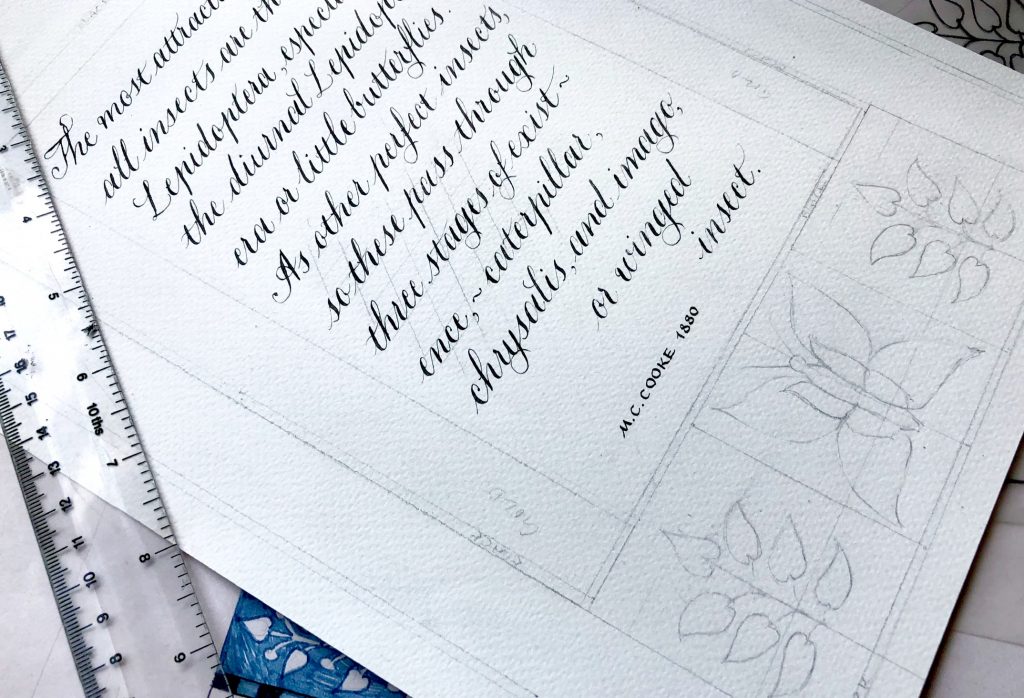 The most attract
all insects are th
Lepidoptera, especi
the diurnal Lepidop
era or little butterflies.
As other perfect insects,
so these pass through
three stages of exist~
ence,~ caterpillar,
chrysalis, and imago,
or winged
insect.
M.C. COOKE 1880
GOLD
3
4
5
6
10ths
7
8
9
17
16
15
14
13
12
11
10
9
8